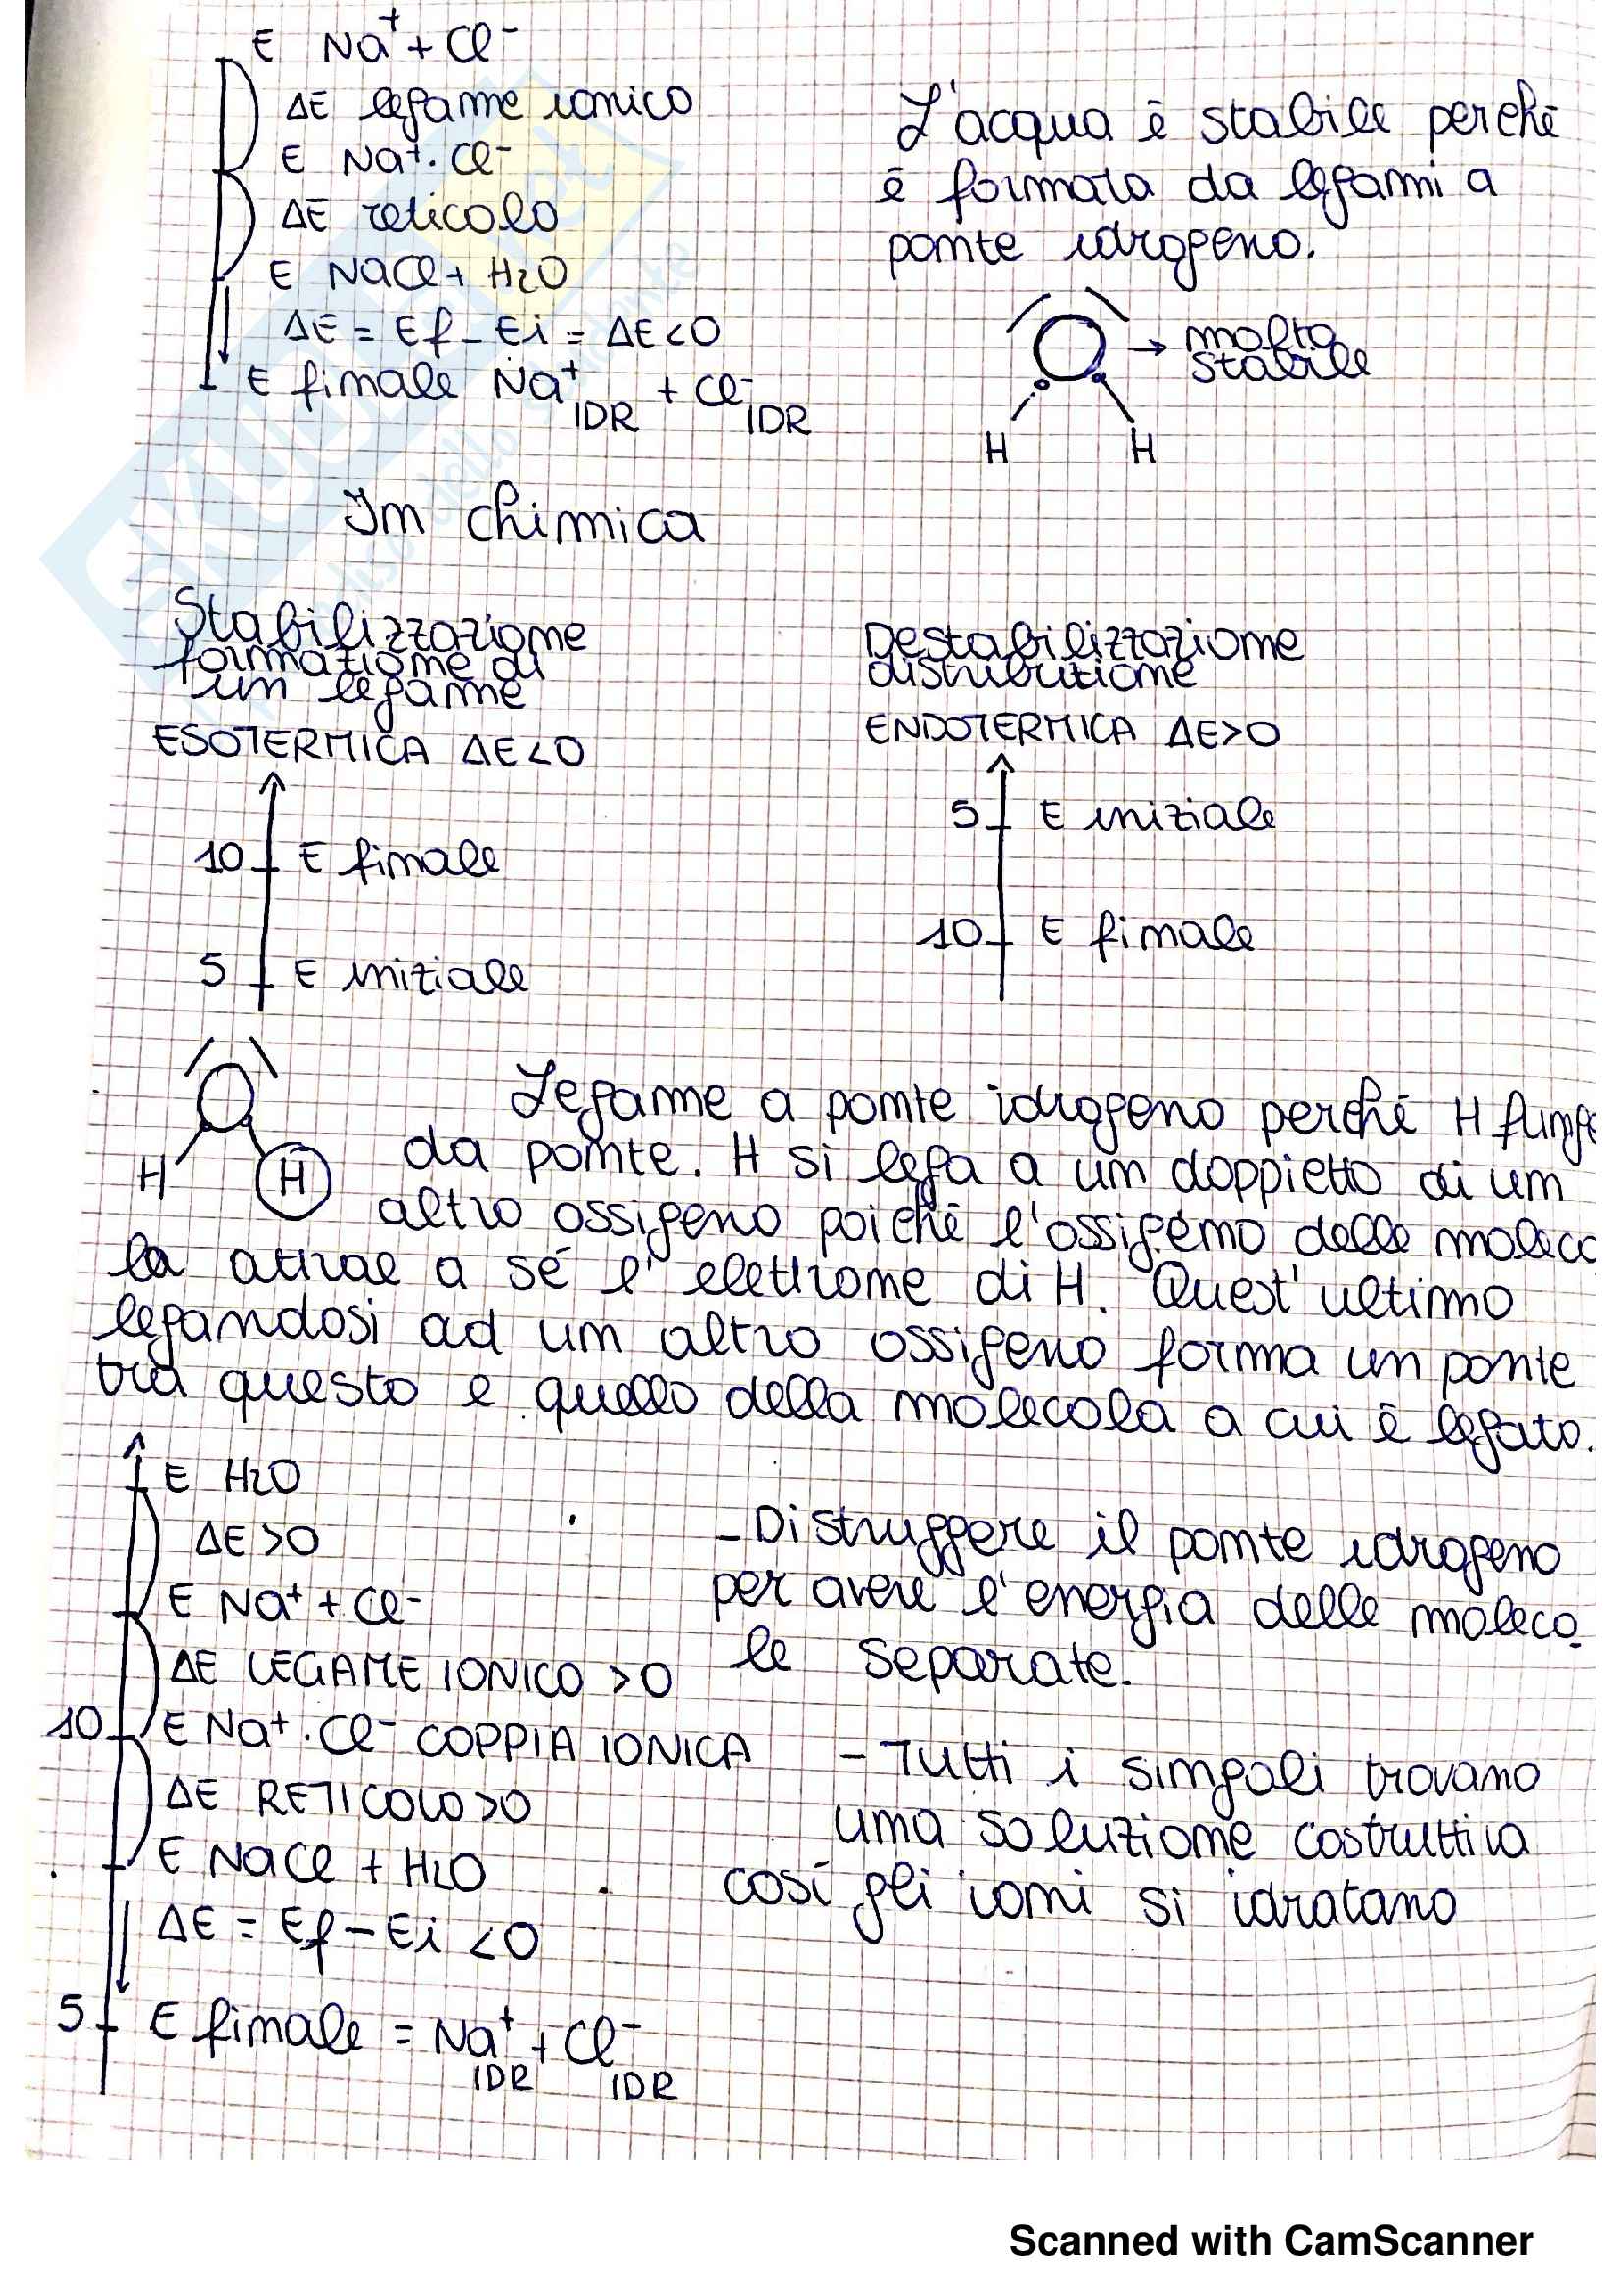 E Na⁺ + Cl⁻
ΔE legame ionico
E Na⁺ · Cl⁻
ΔE reticolo
E NaCl + H₂O
ΔE = Ef - Ei = ΔE < 0
E finale Na⁺ IDR + Cl⁻ IDR
L'acqua è stabile perché
è formata da legami a
ponte idrogeno.
O → molto
stabile
H H
In chimica
Stabilizzazione
formazione di
un legame
ESOTERMICA ΔE < 0
10 E finale
5 E iniziale
Destabilizzazione
distribuzione
ENDOTERMICA ΔE > 0
5 E iniziale
10 E finale
O
H H
Legame a ponte idrogeno perché H funge
da ponte. H si lega a un doppietto di un
altro ossigeno poiché l'ossigeno delle moleco
la attrae a sé l'elettrone di H. Quest'ultimo
legandosi ad un altro ossigeno forma un ponte
tra questo e quello della molecola a cui è legato.
E H₂O
ΔE > 0
E Na⁺ + Cl⁻
ΔE LEGAME IONICO > 0
10 E Na⁺ · Cl⁻ COPPIA IONICA
ΔE RETICOLO > 0
E NaCl + H₂O
ΔE = Ef - Ei < 0
5 E finale = Na⁺ IDR + Cl⁻ IDR
- Distruggere il ponte idrogeno
per avere l'energia delle moleco
le separate.
- Tutti i singoli trovano
una soluzione costruttiva
così gli ioni si idratano
Scanned with CamScanner